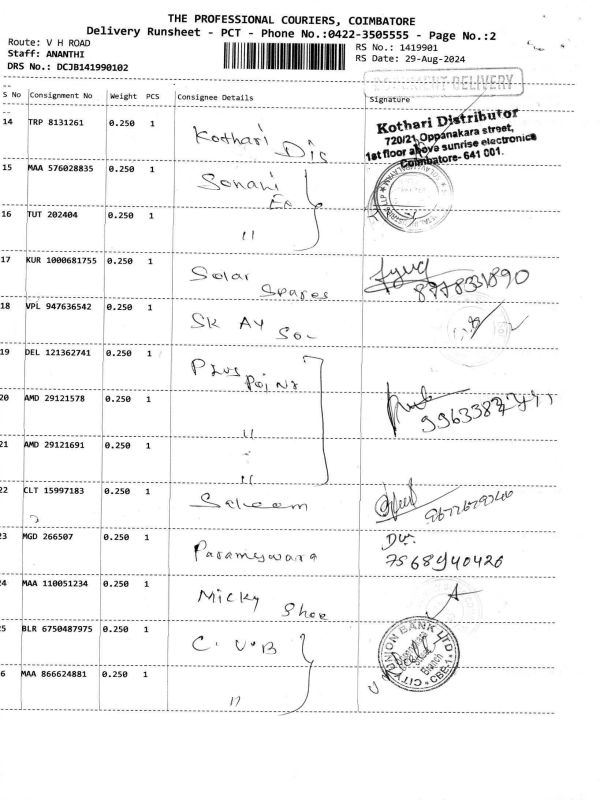 THE PROFESSIONAL COURIERS, COIMBATORE
Delivery Runsheet - PCT - Phone No.:0422-3505555 - Page No.:2
Route: V H ROAD
RS No.: 1419901
Staff: ANANTHI
RS Date: 29-Aug-2024
DRS No.: DCJB141990102
DELIVERY
S No Consignment No Weight PCS Consignee Details Signature
14 TRP 8131261 0.250 1 Kothari Dis
Kothari Distributor
720/21, Oppanakara street,
1st floor above sunrise electronics
Coimbatore- 641 001.
15 MAA 576028835 0.250 1 Sonani
16 TUT 202404 0.250 1 "
17 KUR 1000681755 0.250 1 Solar Spares
8778331890
18 VPL 947636542 0.250 1 SK AY
19 DEL 121362741 0.250 1 Plus Point
20 AMD 29121578 0.250 1 "
21 AMD 29121691 0.250 1 "
22 CLT 15997183 0.250 1 Saleem
23 MGD 266507 0.250 1 Parameswara
7568940420
24 MAA 110051234 0.250 1 Micky Shoe
25 BLR 6750487975 0.250 1 C.U.B
CITY UNION BANK LTD
Branch
CBE-1
6 MAA 866624881 0.250 1 "